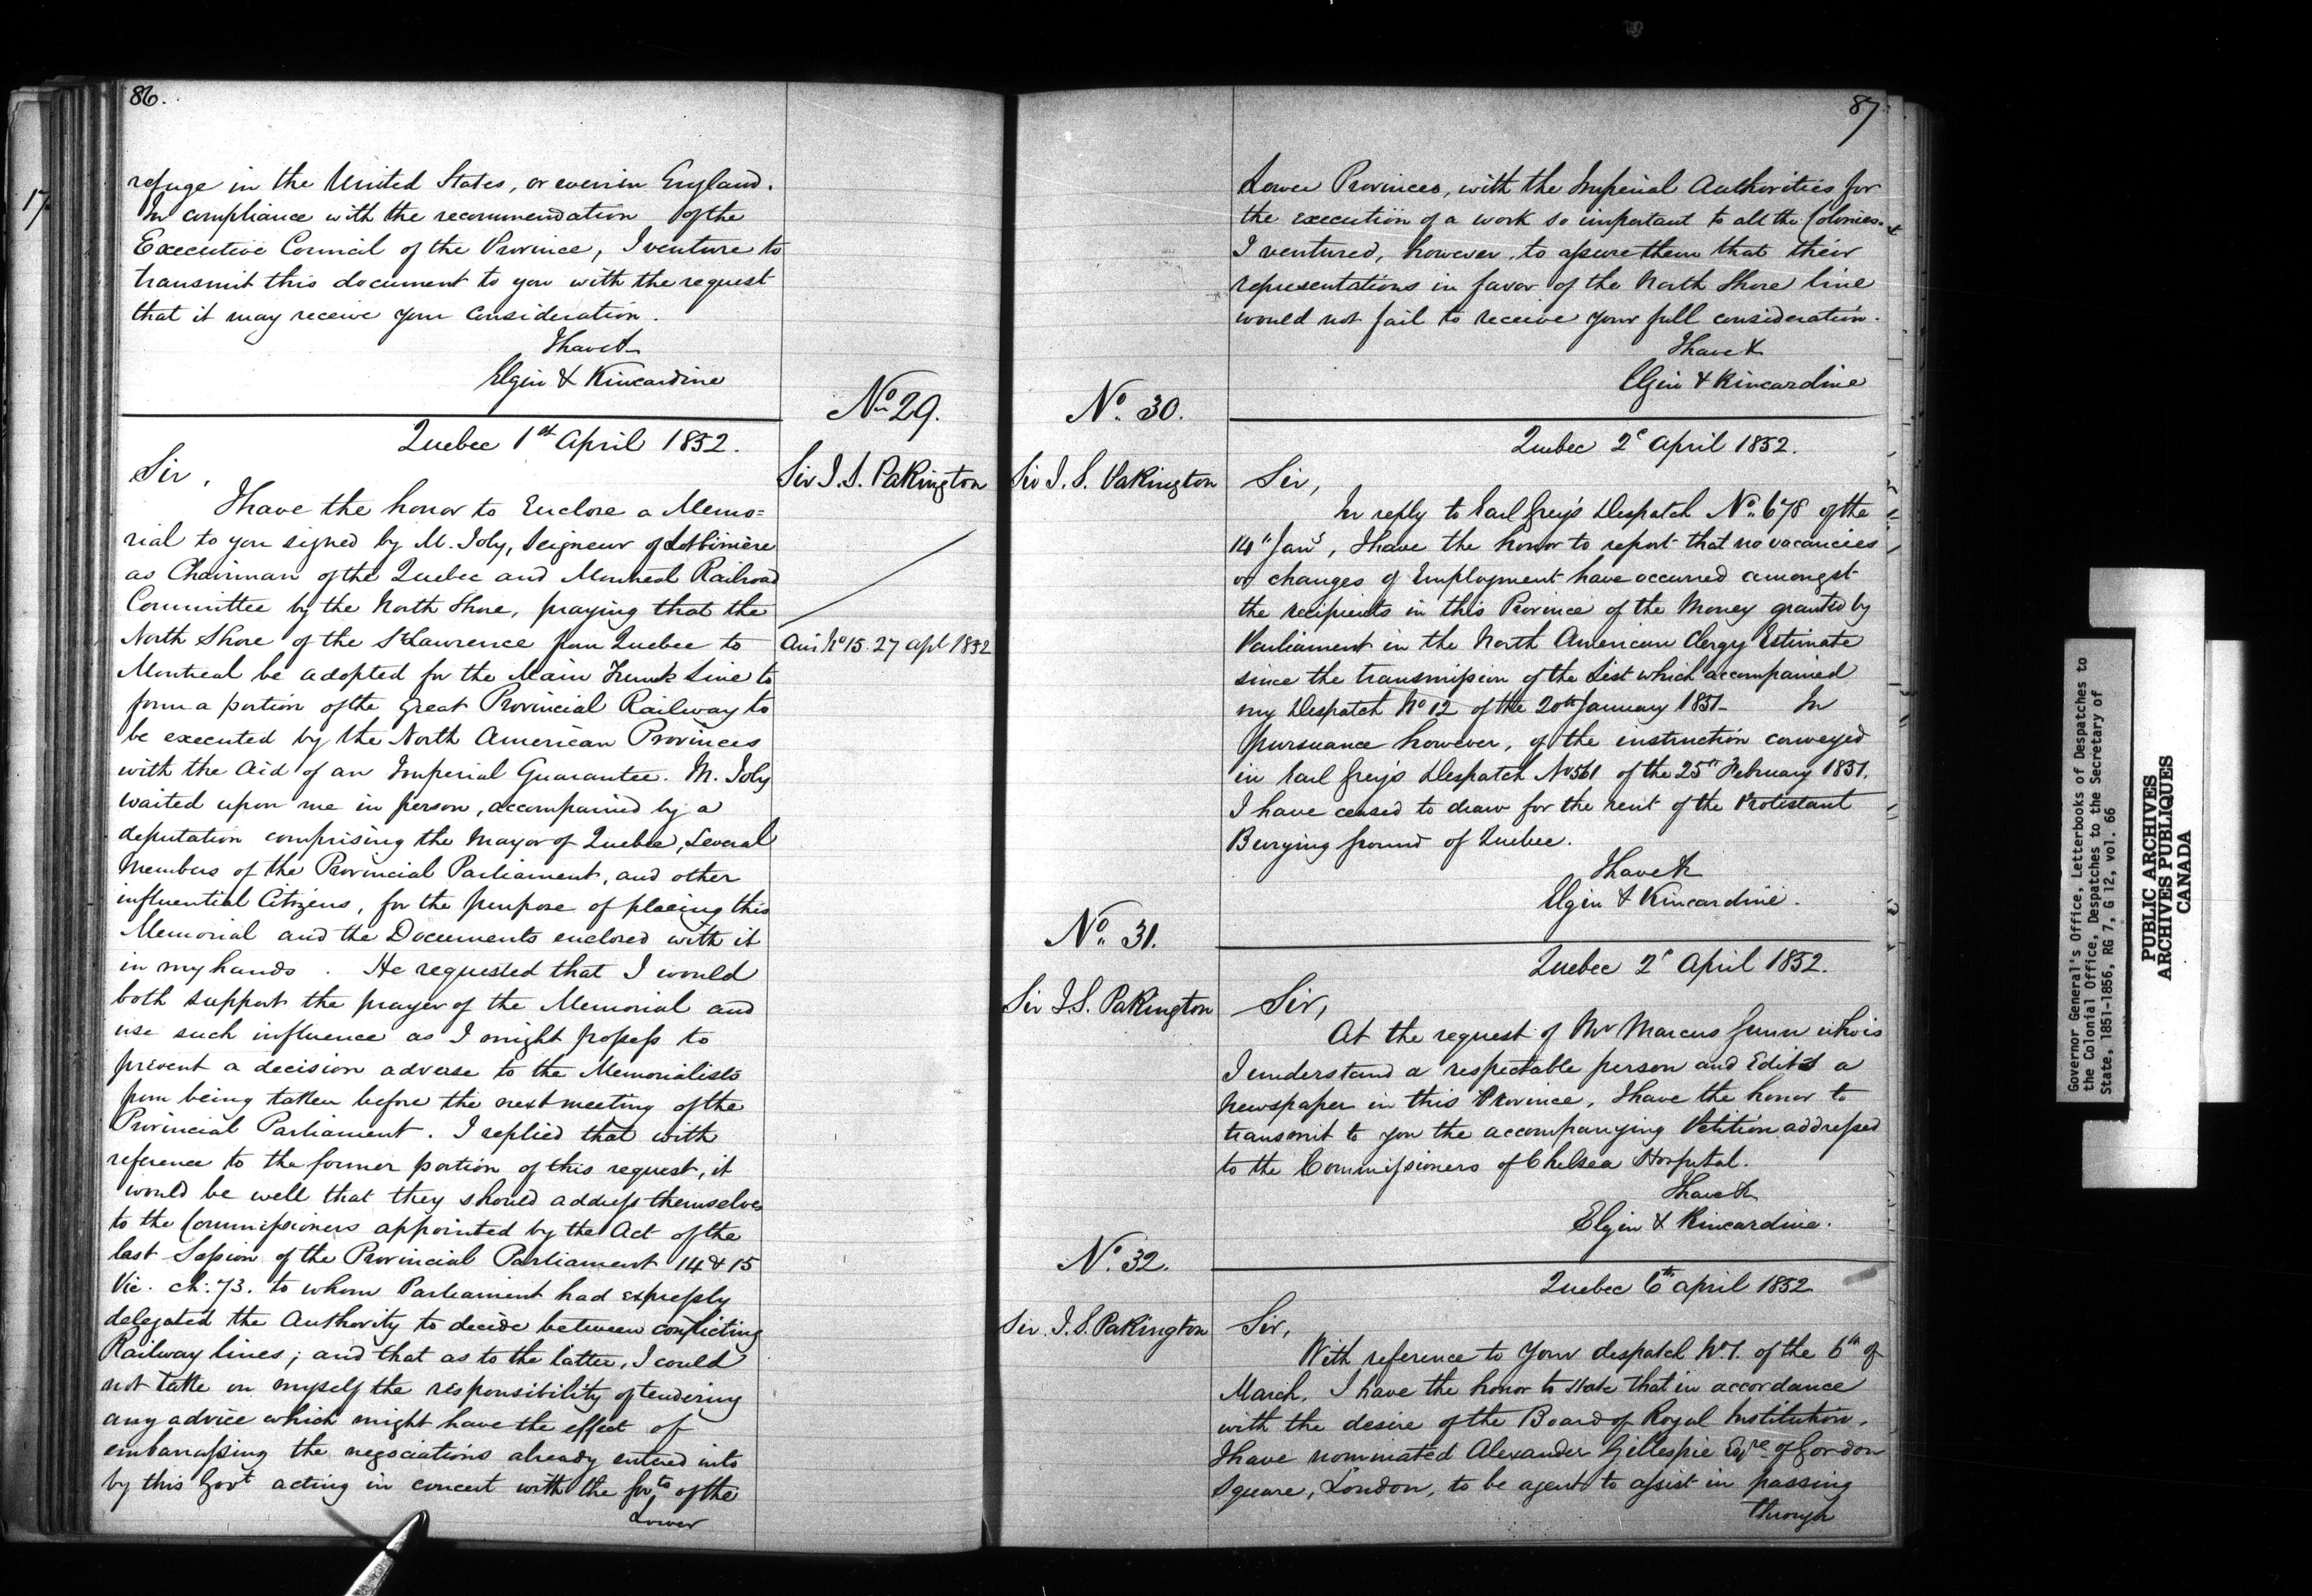 86.
refuge in the United States, or even in England.
In compliance with the recommendation of the
Executive Council of the Province, I venture to
transmit this document to you with the request
that it may receive your consideration.
I have &
Elgin & Kincardine
No 29.
Sir J. S. Pakington
Ansd No 15. 27 Apl 1852
Quebec 1st April 1852.
Sir,
I have the honor to Enclose a Memo=
rial to you signed by M. Joly, Seigneur of Lotbinière
as Chairman of the Quebec and Montreal Railroad
Committee by the North Shore, praying that the
North Shore of the St Lawrence from Quebec to
Montreal be adopted for the Main Trunk Line to
form a portion of the Great Provincial Railway to
be executed by the North American Provinces
with the Aid of an Imperial Guarantee. M. Joly
waited upon me in person, accompanied by a
deputation comprising the Mayor of Quebec, Several
Members of the Provincial Parliament, and other
influential Citizens, for the purpose of placing this
Memorial and the Documents enclosed with it
in my hands. He requested that I would
both support the prayer of the Memorial and
use such influence as I might possess to
prevent a decision adverse to the Memorialists
from being taken before the next meeting of the
Provincial Parliament. I replied that with
reference to the former portion of this request, it
would be well that they should address themselves
to the Commissioners appointed by the Act of the
last Session of the Provincial Parliament 14 & 15
Vic. ch: 73. to whom Parliament had expressly
delegated the Authority to decide between conflicting
Railway lines; and that as to the latter, I could
not take on myself the responsibility of tendering
any advice which might have the effect of
embarrassing the negociations already entered into
by this Govt acting in concert with the Govts of the
Lower
87.
Lower Provinces, with the Imperial Authorities for
the execution of a work so important to all the Colonies.
I ventured, however, to assure them that their
representations in favor of the North Shore line
would not fail to receive your full consideration.
I have &
Elgin & Kincardine
No. 30.
Sir J. S. Pakington
Quebec 2d April 1852.
Sir,
In reply to Earl Grey's Despatch No. 678 of the
14th Jany, I have the honor to report that no vacancies
or changes of Employment have occurred amongst
the recipients in this Province of the Money granted by
Parliament in the North American Clergy Estimate
since the transmission of the List which accompanied
my Despatch No 12 of the 20th January 1851_ In
pursuance however, of the instruction conveyed
in Earl Grey's Despatch No 561 of the 25th February 1851.
I have ceased to draw for the rent of the Protestant
Burying ground of Quebec.
I have &
Elgin & Kincardine.
No. 31.
Sir J. S. Pakington
Quebec 2d April 1852.
Sir,
At the request of Mr Marcus Gunn who is
I understand a respectable person and Edits a
Newspaper in this Province, I have the honor to
transmit to you the accompanying Petition addressed
to the Commissioners of Chelsea Hospital.
I have &
Elgin & Kincardine.
No. 32.
Sir J. S. Pakington
Quebec 6th April 1852
Sir,
With reference to your despatch No 1. of the 6th of
March, I have the honor to state that in accordance
with the desire of the Board of Royal Institution,
I have nominated Alexander Gillespie Esqre of Gordon
Square, London, to be agent to assist in passing
through
17
Governor General's Office, Letterbooks of Despatches to
the Colonial Office, Despatches to the Secretary of
State, 1851-1856, RG 7, G 12, vol. 66
PUBLIC ARCHIVES
ARCHIVES PUBLIQUES
CANADA